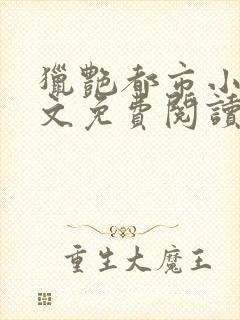 獵艷都市小
文免費閱讀
重生大魔王